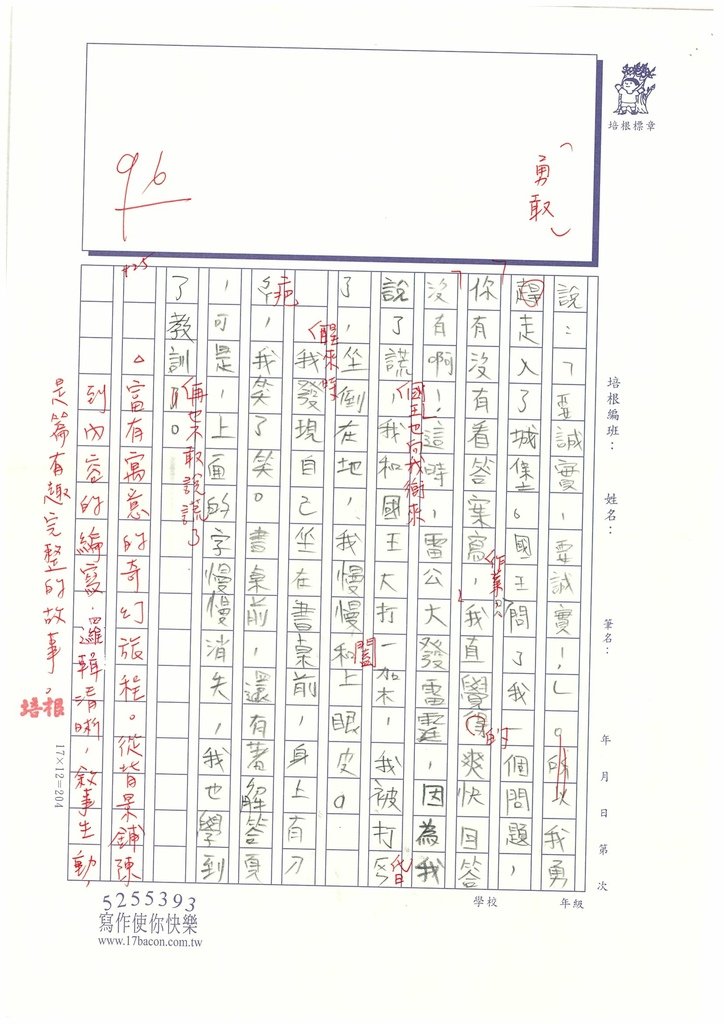 培根標章
「勇敢」
96
培根編班：
姓名：
筆名：
年 月 日 第 次
說：「要誠實，要誠實！」所以我勇
趕走入了城堡。國王問了我一個問題，
你有沒有看答案寫，我直覺得爽快回答
作業
的
沒有啊！，這時，雷公大發雷霆，因為我
說了謊，我和國王大打一架，我被打
國王也向我衝來
了，坐倒在地，我慢慢和上眼皮。
闔
我發現自己坐在書桌前，身上有刀
醒來時
疤，我笑了笑。書桌前，還有著解答頁
，可是，上面的字慢慢消失，我也學到
了教訓。
再也不敢說謊了
△富有寓意的奇幻旅程。從背景鋪陳
到內容的編寫，邏輯清晰，敘事生動，
是篇有趣完整的故事。
培根
17×12=204
學校
年級
5255393
寫作使你快樂
www.17bacon.com.tw